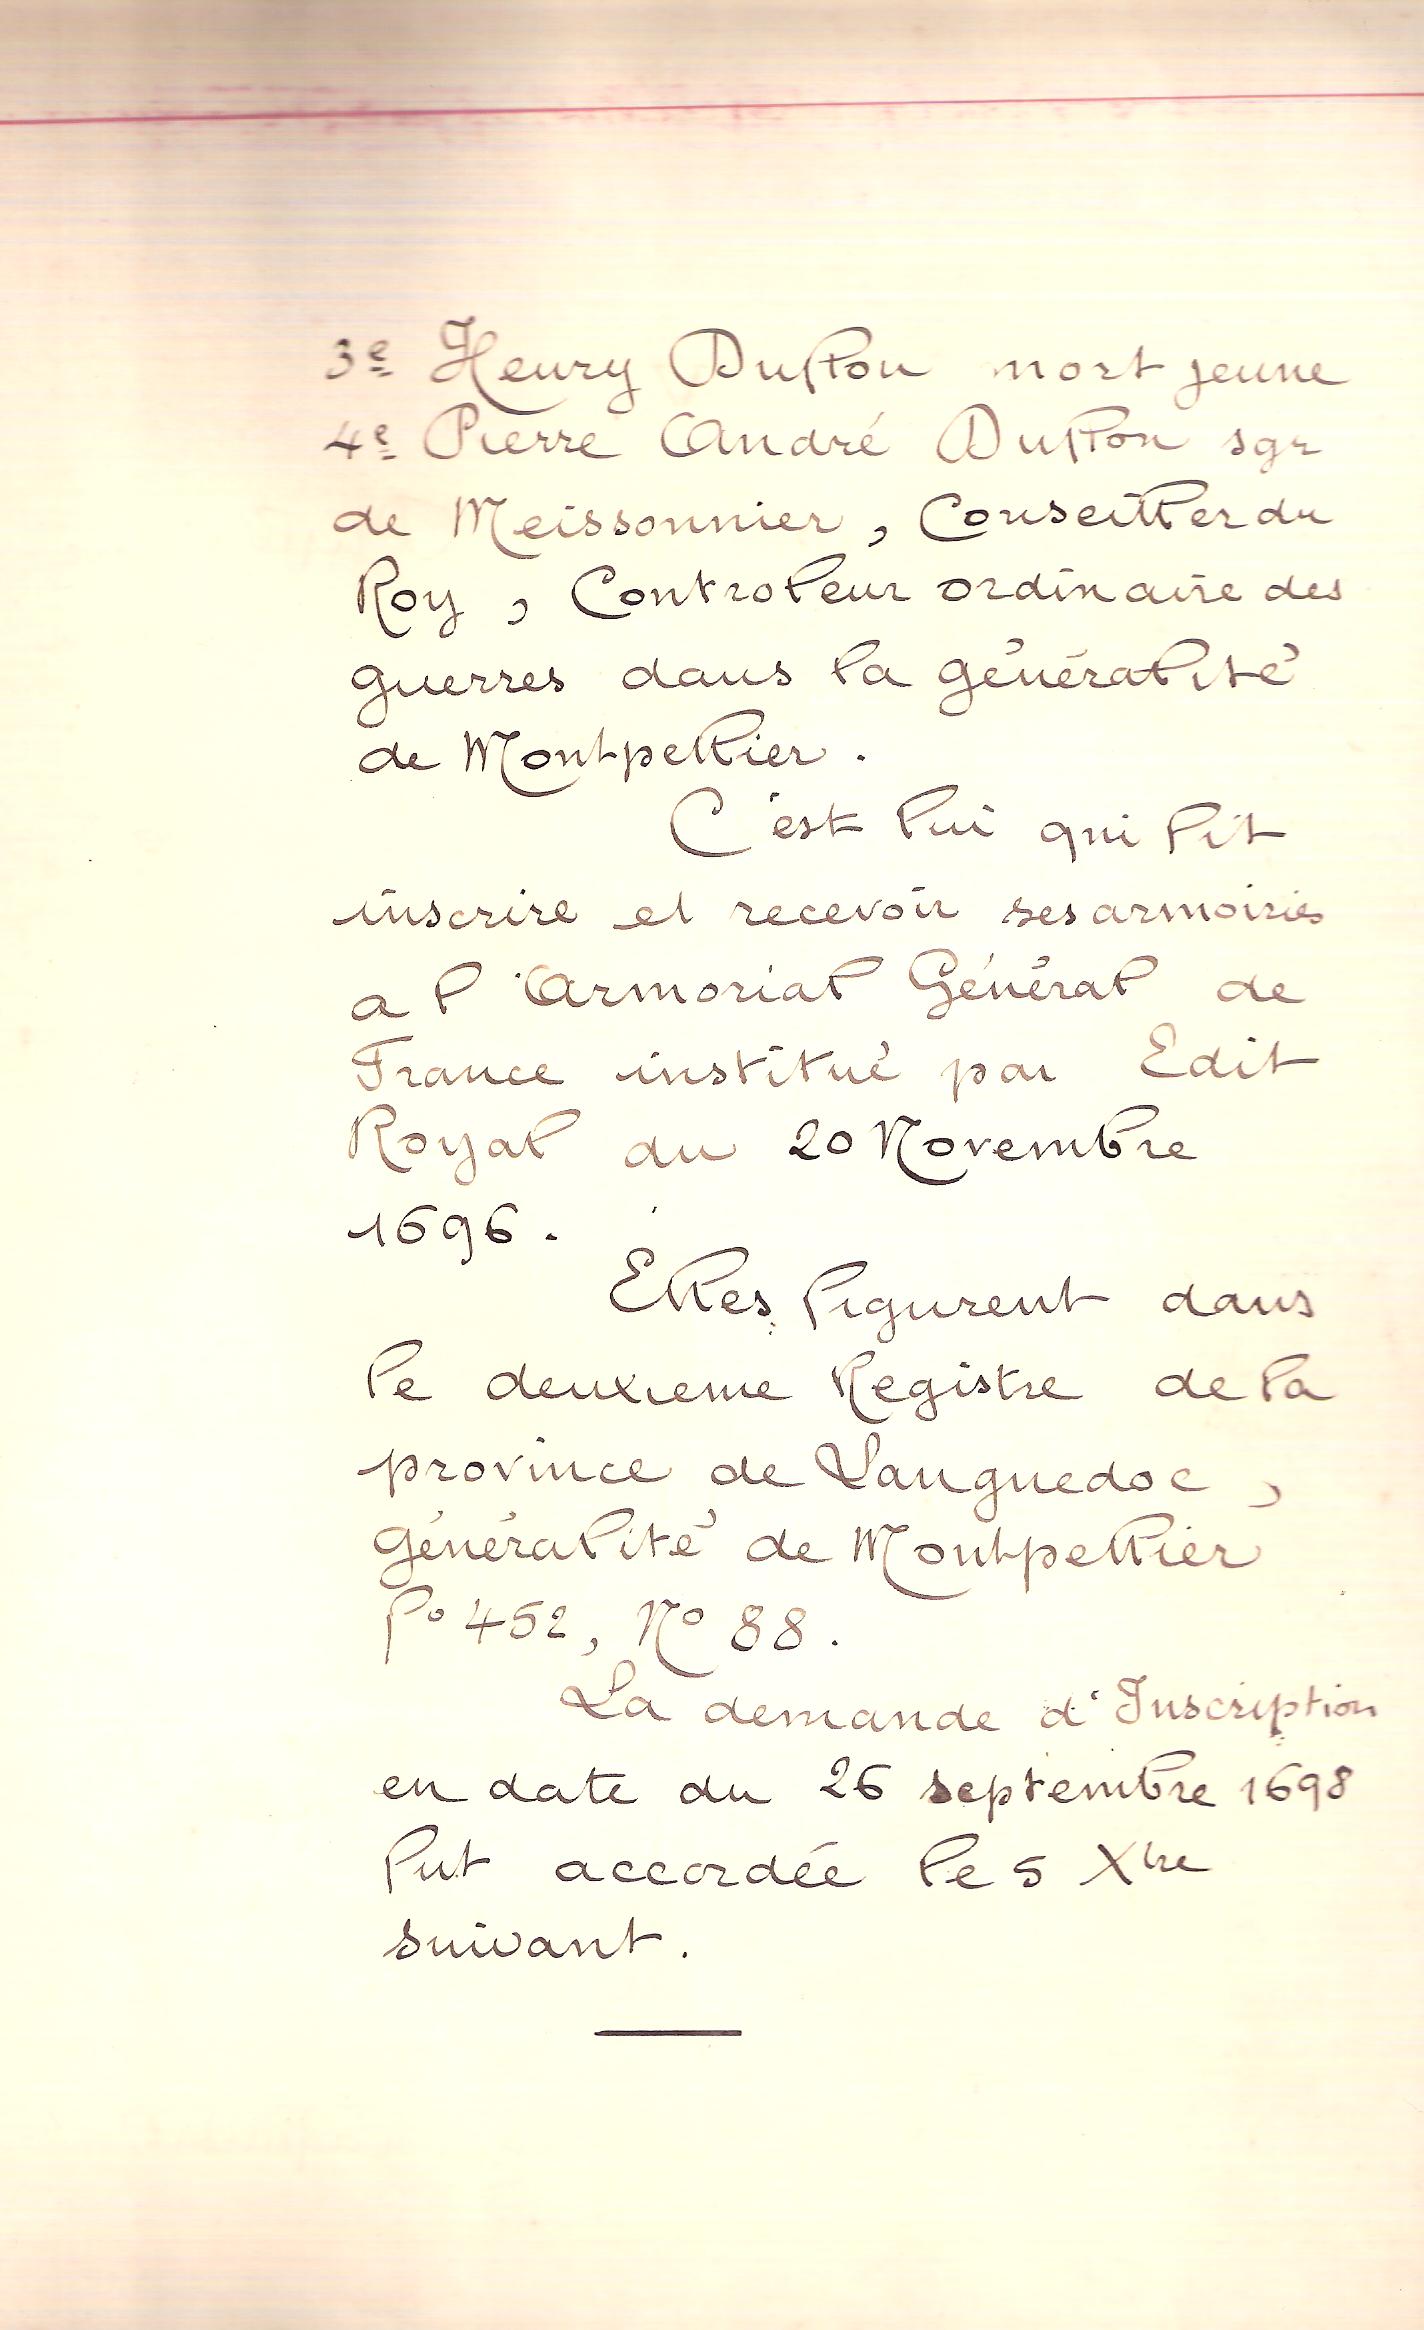 3e Henry Duffon mort jeune
4e Pierre André Duffon sgr
de Meissonnier, Conseiller du
Roy, Controleur ordinaire des
guerres dans la généralité
de Montpellier.
C'est lui qui fit
inscrire et recevoir ses armoiries
a l'Armorial Général de
France institué par Edit
Royal du 20 Novembre
1696.
Elles figurent dans
le deuxieme Registre de la
province de Languedoc,
Généralité de Montpellier
fo 452, No 88.
La demande d'Inscription
en date du 26 septembre 1698
fut accordée le 5 Xbre
suivant.